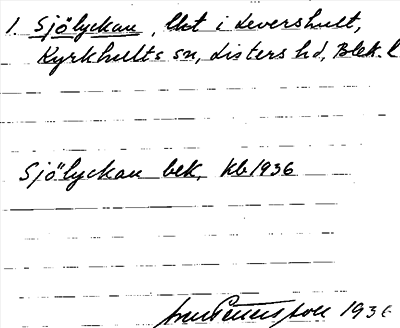 1. Sjölyckan, lht i Levershult,
Kyrkhults sn, Listers hd, Blek. l
Sjölyckan bek. kb 1936
1936